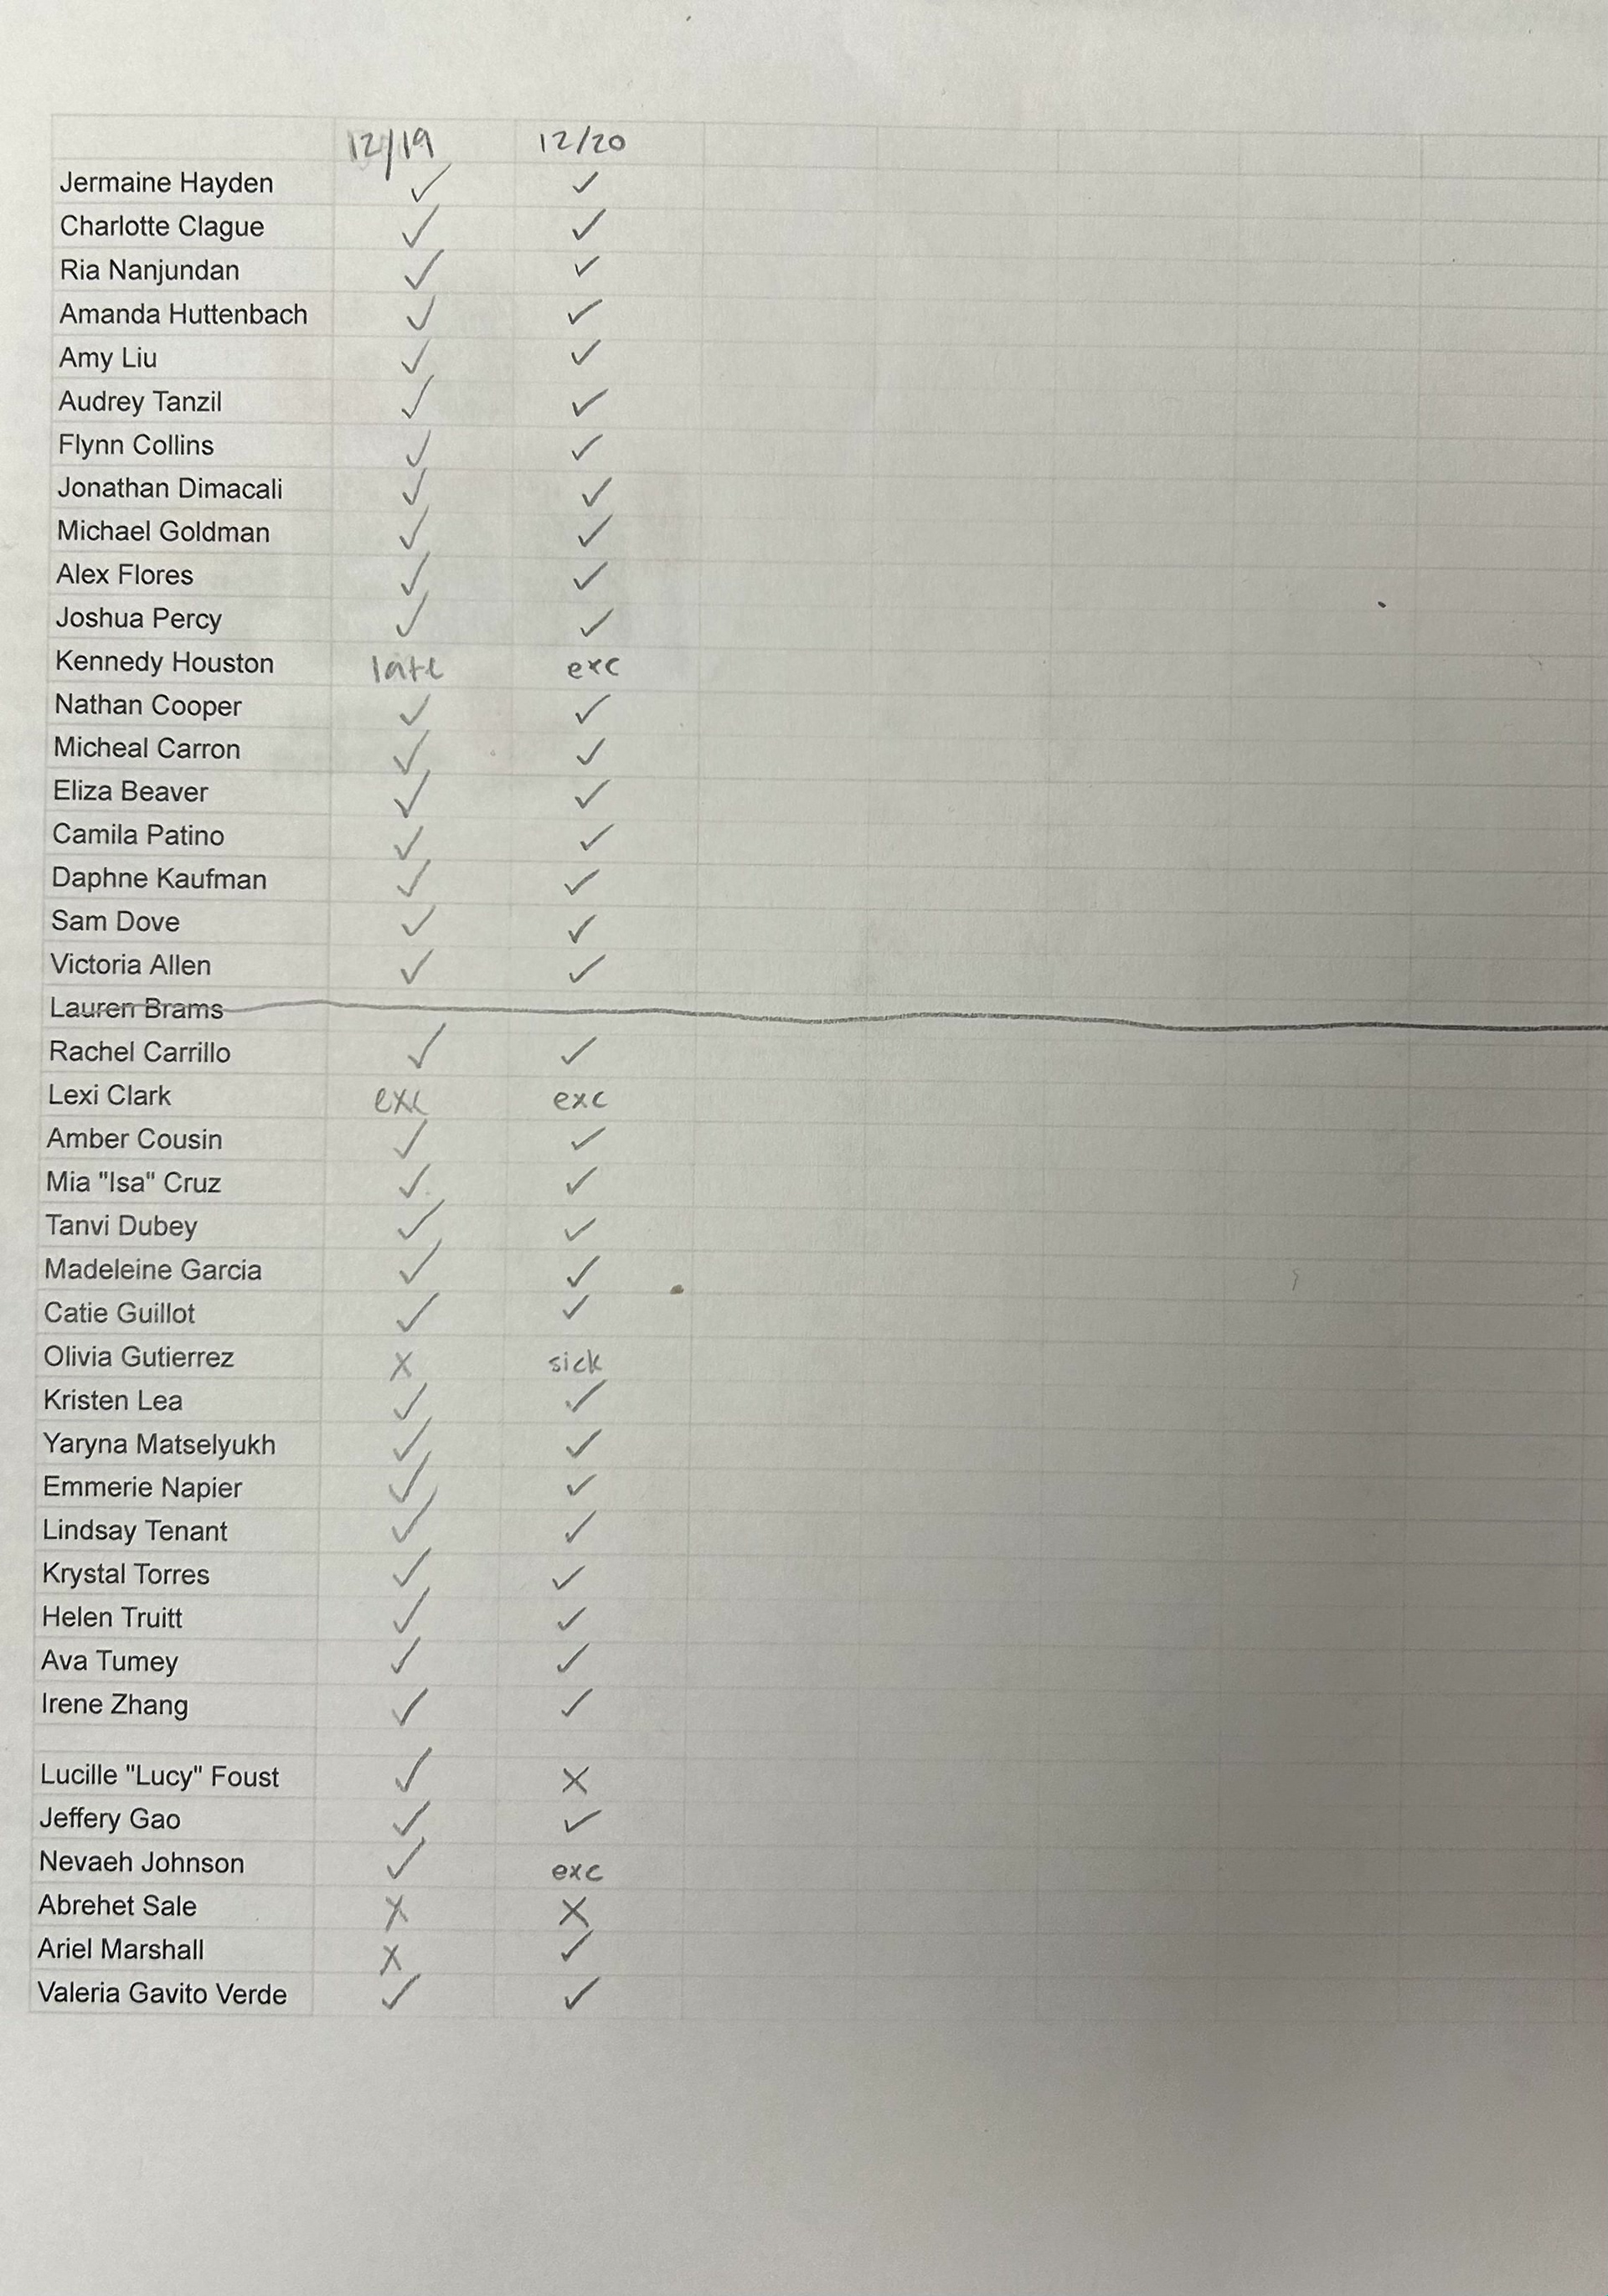 12/19 12/20
Jermaine Hayden ✓ ✓
Charlotte Clague ✓ ✓
Ria Nanjundan ✓ ✓
Amanda Huttenbach ✓ ✓
Amy Liu ✓ ✓
Audrey Tanzil ✓ ✓
Flynn Collins ✓ ✓
Jonathan Dimacali ✓ ✓
Michael Goldman ✓ ✓
Alex Flores ✓ ✓
Joshua Percy ✓ ✓
Kennedy Houston late exc
Nathan Cooper ✓ ✓
Micheal Carron ✓ ✓
Eliza Beaver ✓ ✓
Camila Patino ✓ ✓
Daphne Kaufman ✓ ✓
Sam Dove ✓ ✓
Victoria Allen ✓ ✓
Lauren Brams
Rachel Carrillo ✓ ✓
Lexi Clark exc exc
Amber Cousin ✓ ✓
Mia "Isa" Cruz ✓ ✓
Tanvi Dubey ✓ ✓
Madeleine Garcia ✓ ✓
Catie Guillot ✓ ✓
Olivia Gutierrez X sick
Kristen Lea ✓ ✓
Yaryna Matselyukh ✓ ✓
Emmerie Napier ✓ ✓
Lindsay Tenant ✓ ✓
Krystal Torres ✓ ✓
Helen Truitt ✓ ✓
Ava Tumey ✓ ✓
Irene Zhang ✓ ✓
Lucille "Lucy" Foust ✓ X
Jeffery Gao ✓ ✓
Nevaeh Johnson ✓ exc
Abrehet Sale X X
Ariel Marshall X ✓
Valeria Gavito Verde ✓ ✓